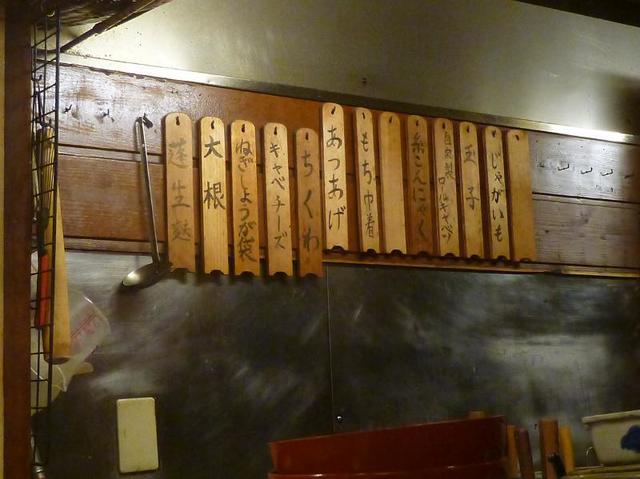 じゃがいも
玉子
自家製ロールキャベツ
糸こんにゃく
もち巾着
あつあげ
ちくわ
キャベチーズ
ねぎしょうが袋
大根
蓬生麩